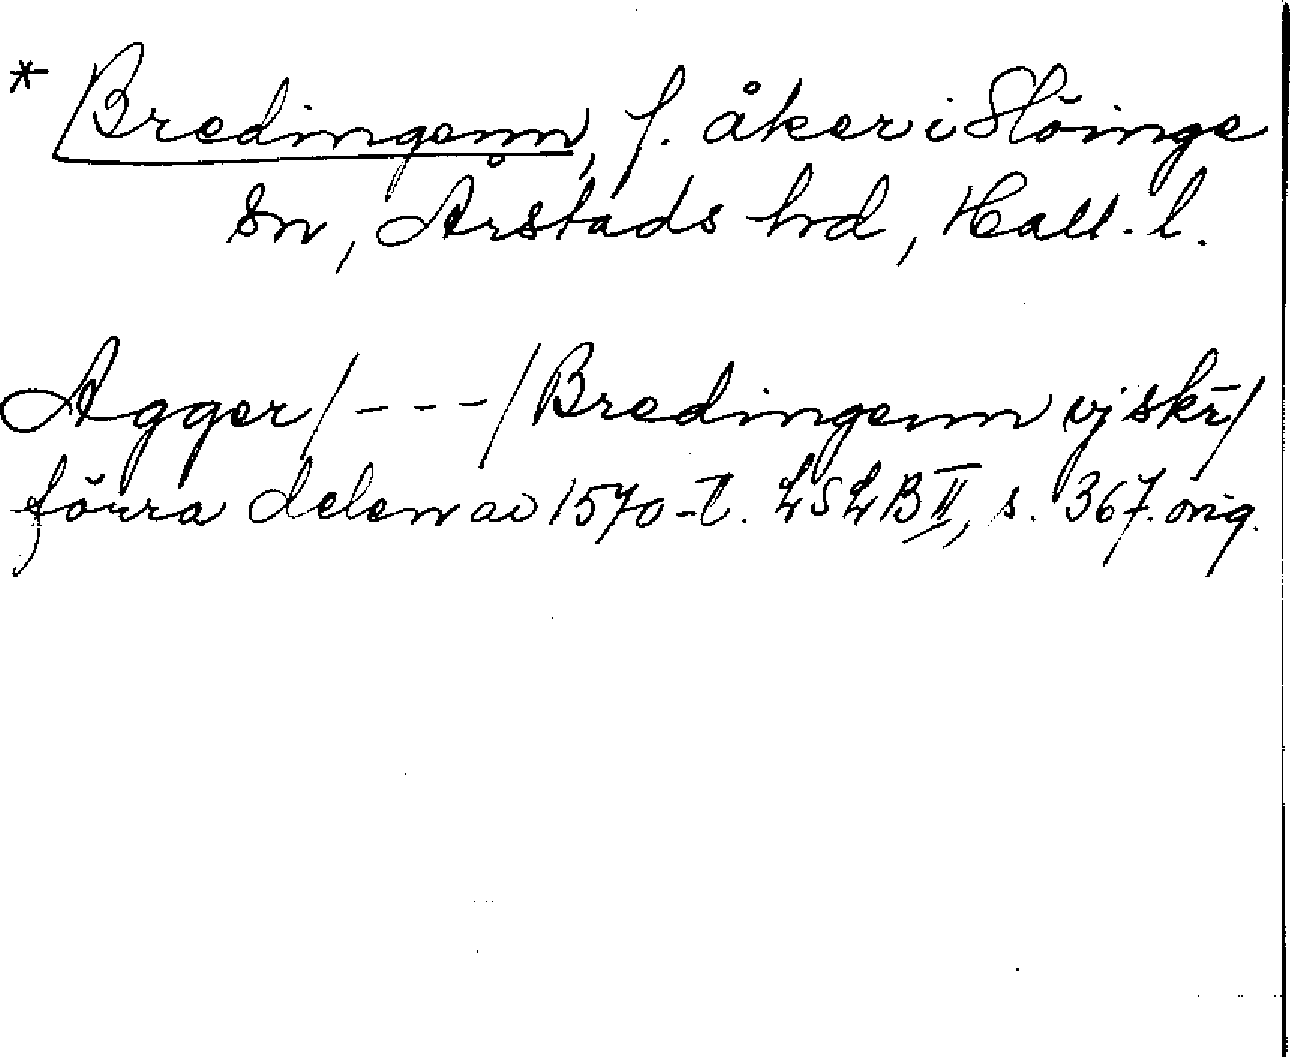 * Bredingenn, f. åker i Slöinge
sn, Årstads hd, Hall. l.
Agger/ - - - /Bredingenn vj skr/
förra delen av 1570-t. LSLB II, s. 367. orig.